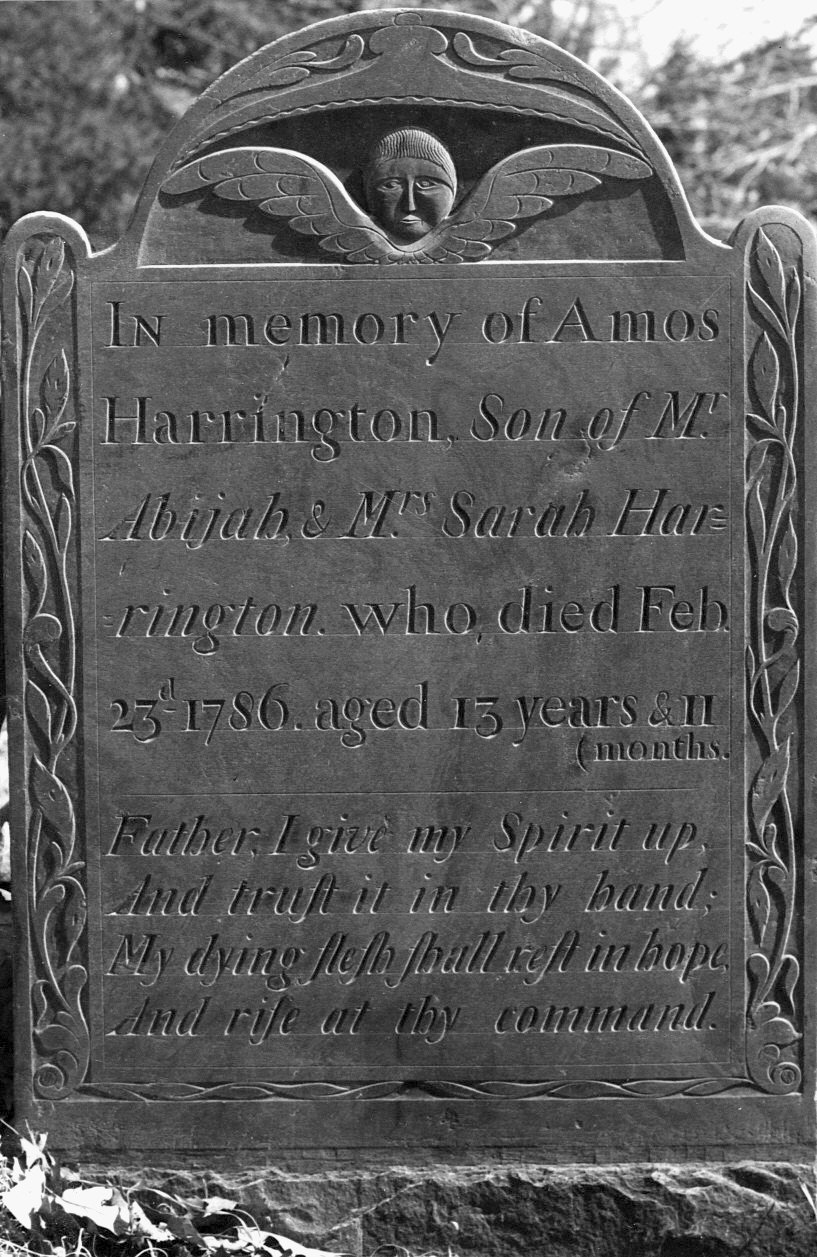 In memory of Amos
Harrington, Son of Mʳ.
Abijah, & Mʳˢ. Sarah Har=
=rington. who, died Feb.
23ᵈ. 1786. aged 13 years & 11
(months.
Father, I give my Spirit up,
And truſt it in thy hand;
My dying fleſh ſhall reſt in hope,
And riſe at thy command.